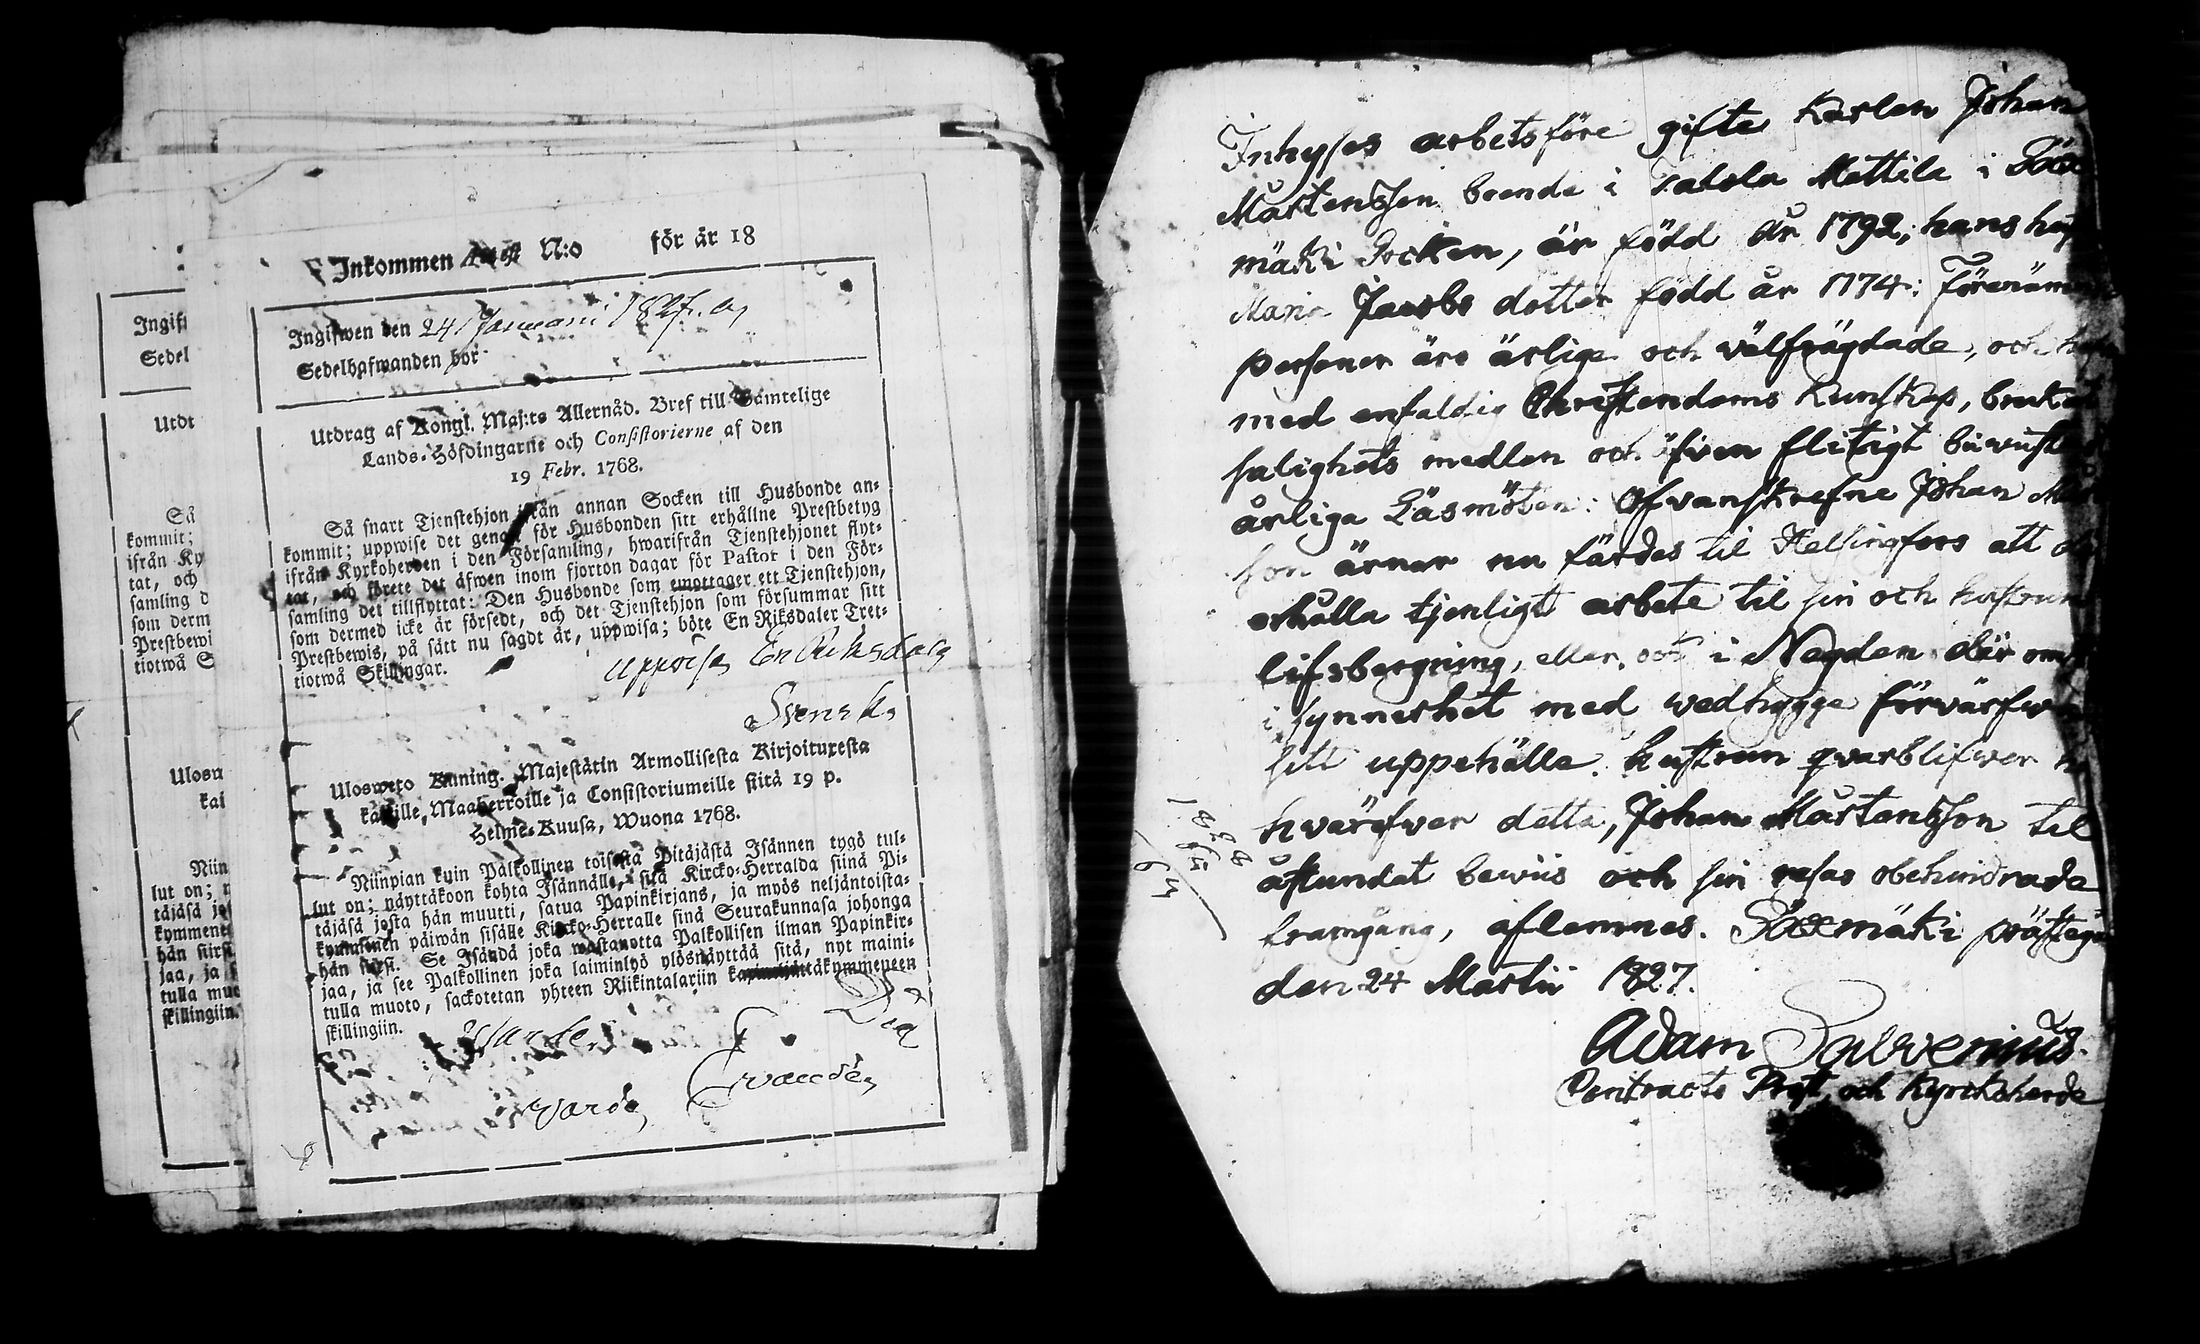 Inkommen N:o för år 18
Ingifwen den 24 Januarii
Sedelhafwanden bor
Utdrag af Kongl. Maj:ts Allernåd. Bref till Samtelige
Lands-Höfdingarne och Consistorierne af den
19 Febr. 1768.
Så snart Tjenstehjon ifrån annan Socken till Husbonde an-
kommit; uppwise det genast för Husbonden sitt erhållne Prestbetyg
ifrån Kyrkoherden i den Församling, hwarifrån Tjenstehjonet flyt-
tat, och förete det äfwen inom fjorton dagar för Pastor i den För-
samling det tillflyttat: Den Husbonde som emottager ett Tjenstehjon,
som dermed icke är försedt, och det Tjenstehjon som försummar sitt
Prestbewis, på sätt nu sagdt är, uppwisa; böte En Riksdaler Tret-
tiotwå Skillingar.
uppvisa En Riksdaler
Svensk
Ulosweto Kuning. Majestätin Armollisesta Kirjoituxesta
kaikille, Maaherroille ja Consistoriumeille siitä 19 p.
Helme-Kuusa, Wuona 1768.
Niinpian kuin Palkollinen toisesta Pitäjästä Isännen tygö tul-
lut on; näyttäkoon kohta Isännälle, sitä Kircko-Herralda siinä Pi-
täjäsä josta hän muutti, saatua Papinkirjans, ja myös neljäntoista-
kymmenen päiwän sisälle Kircko-Herralle sinä Seurakunnasa johonga
hän siirsi. Se Isändä joka wastanotta Palkollisen ilman Papinkir-
jaa, ja see Palkollinen joka laiminlyö ylösnäyttää sitä, nyt maini-
tulla muoto, sackotetan yhteen Riikintalariin
skillingiin.
Ingif
Sedel
Utdr
Så
kommit;
ifrån Ky
tat, och
samling d
som derm
Prestbewi
tiotwå S
Ulosw
kai
Niin
lut on; n
täjäsä jo
kymmene
hän siirsi
jaa, ja
tulla muo
skillingiin.
Inhyses arbetsföre gifte Karlen Johan
Mårtensson boende i Mattila i Sääx
mäki Socken, är född år 1792; hans hust
Maria Jacobs dotter född år 1774: Förenämn
personer äro ärlige och wälfrägdade, och
med enfaldig Christendoms Kunskap, bruka
salighets medlen och äfven flitigt biwista
årliga Läsmöten: Ofwanskrefne Johan Mår
son ärnar nu färdas til Helsingfors att d
erhålla tjenligt arbete til sin och hustrun
lifsbergning, eller och i Nägden där om
i synnerhet med wedhygge förvärfwa
sitt uppehälle. hustrun qvarblifwer
hvaröfwer detta, Johan Mårtensson til
åstundat bewiis och sin resas obehindrade
framgång, aflemnes. Sääxmäki prästegå
den 24 Martii 1827.
Adam
Contracts Prost och Kyrckoherde